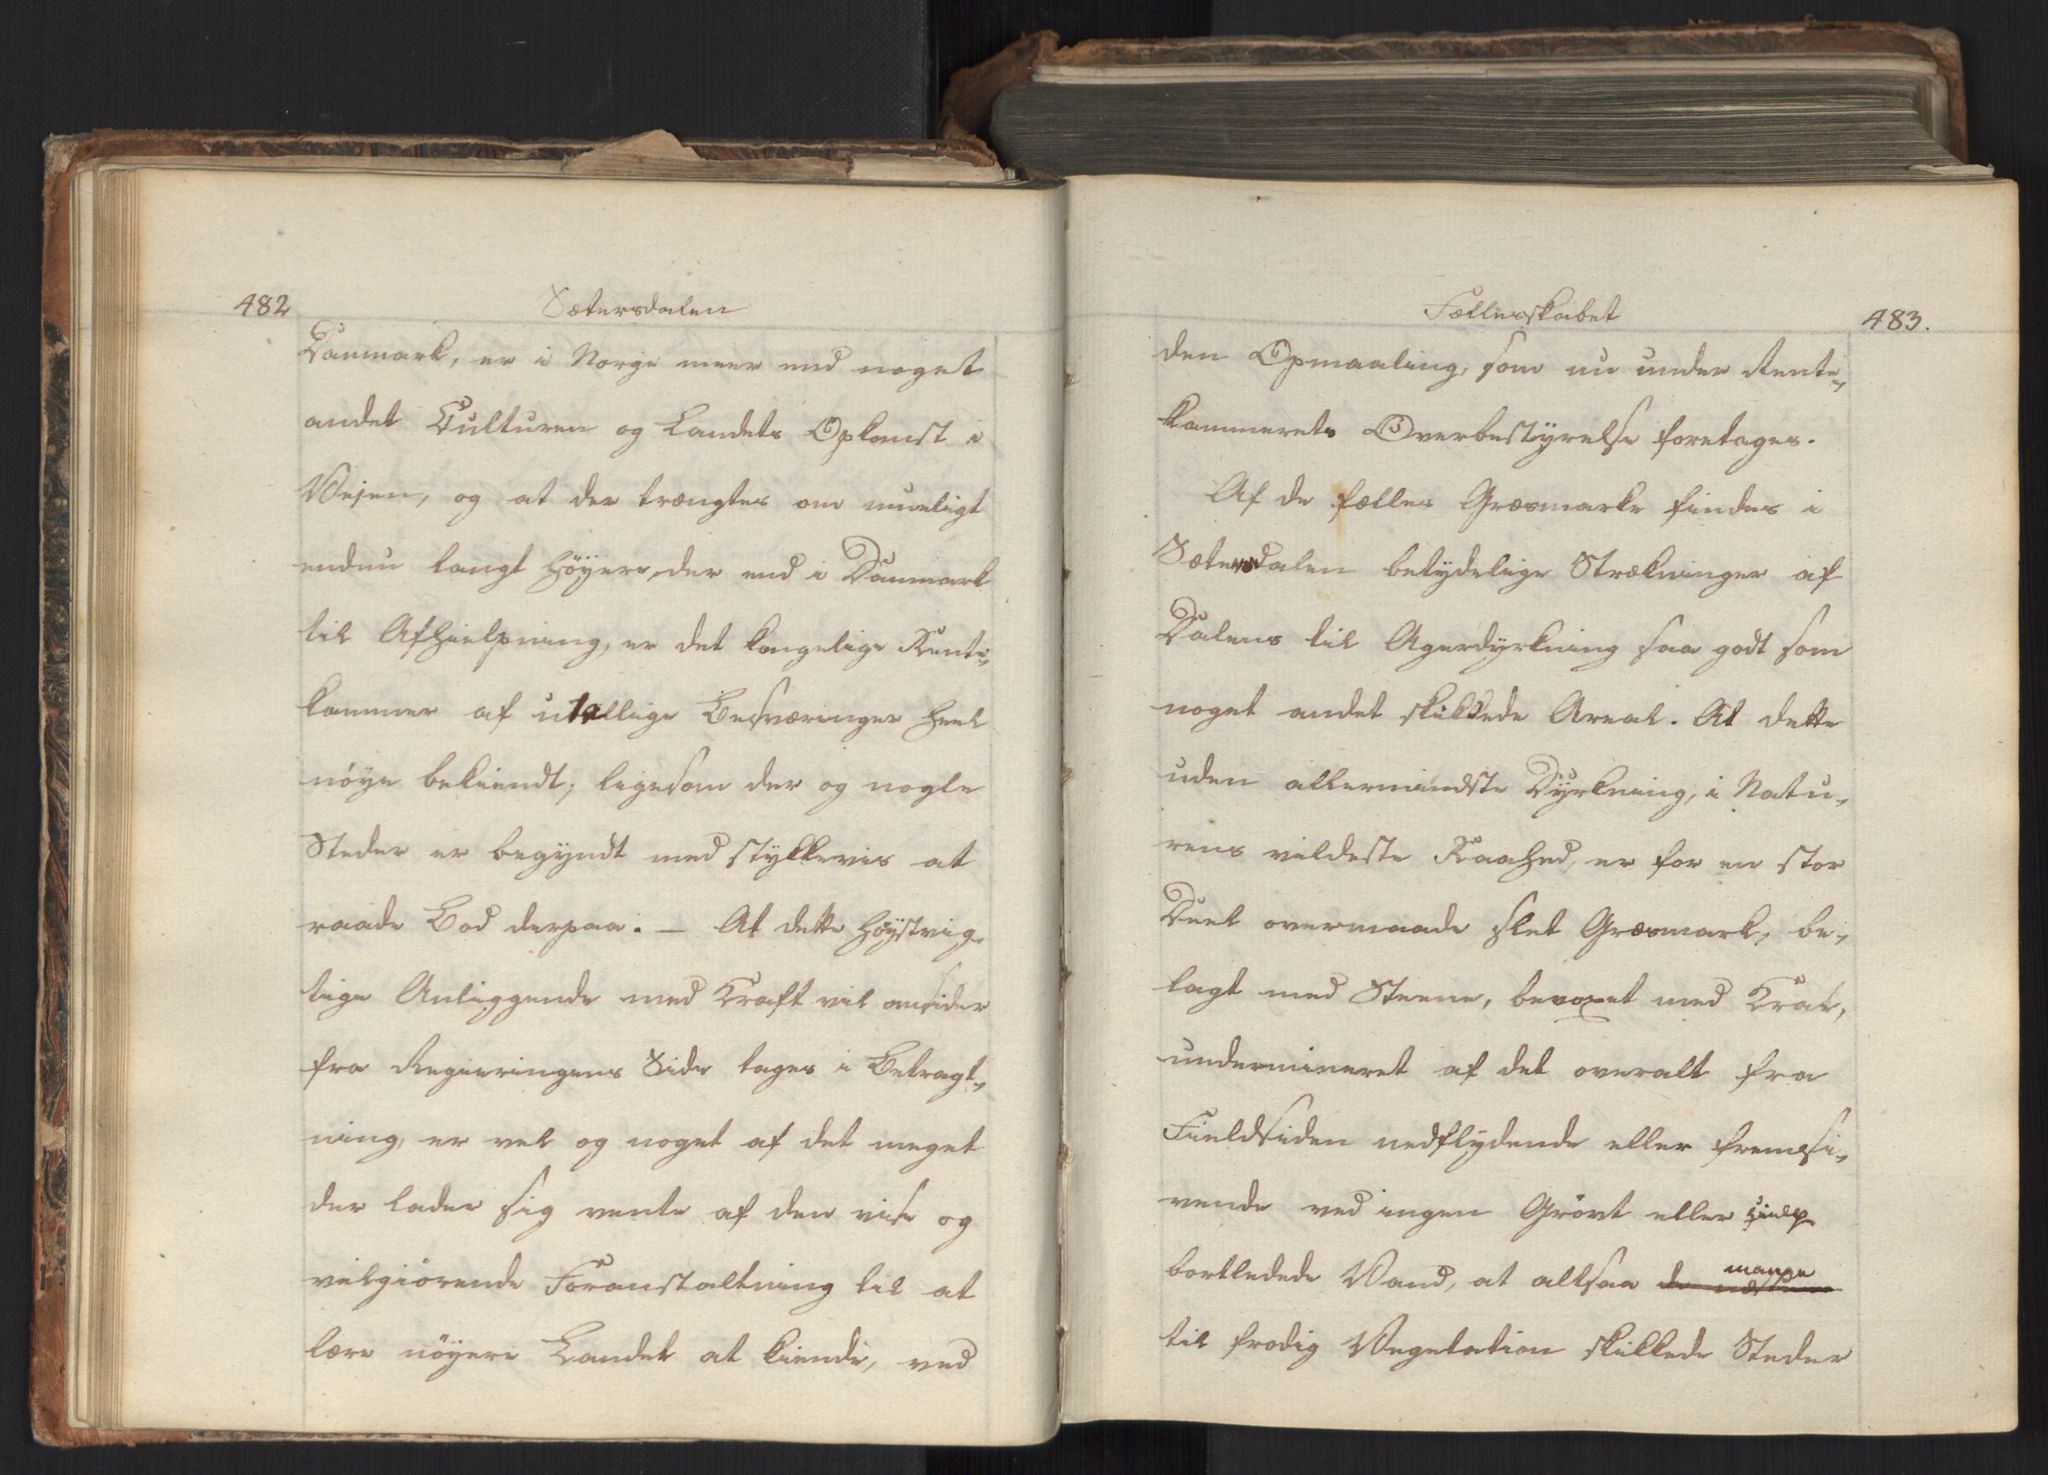 482
Sætersdalen
Danmark, er i Norge meer end noget
andet Culturen og Landets Opkomst i
Vejen, og at der trængtes om mueligt
endnu langt höyere der end i Danmark
til Afhielpning, er det kongelige Rente-
kammer af utallige Besværinger heel
nöye bekiendt; ligesom der og nogle
Steder er begyndt med stykkevis at
raade Bod derpaa. — At dette höystvig-
tige Anliggende med Kraft vil omsider
fra Regieringens Side tages i Betragt-
ning, er vel og noget af det meget
der lader sig vente af den vise og
velgiörende Foranstaltning til at
lære nöyere Landet at kiende, ved
Fællesskabet
483.
den Opmaaling, som nu under Rente-
kammerets Overbestyrelse foretages.
Af de fælles Græsmarke findes i
Sætersdalen betydelige Strækninger af
Dalens til Agerdyrkning saa godt som
noget andet skikkede Areal. At dette
uden allermindste Dyrkning, i Natu-
rens vildeste Raahed, er for en stor
Deel overmaade slet Græsmark, be-
lagt med Steene, bevoxet med Krat,
undermineret af det overalt fra
Fieldsiden nedflydende eller fremsi-
vende ved ingen Grövt eller hielp
bortledede Vand, at altsaa de mange
til frodig Vegetation skikkede Steder